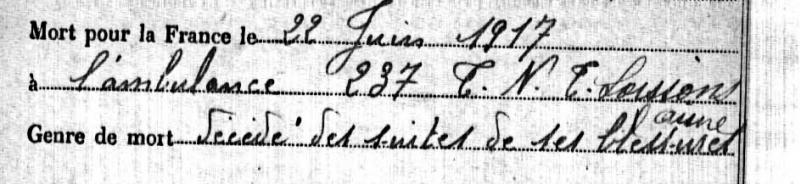 Mort pour la France le 22 Juin 1917
à l'ambulance 237 T. N. T. Soissons
aisne
Genre de mort décédé des suites de ses blessures